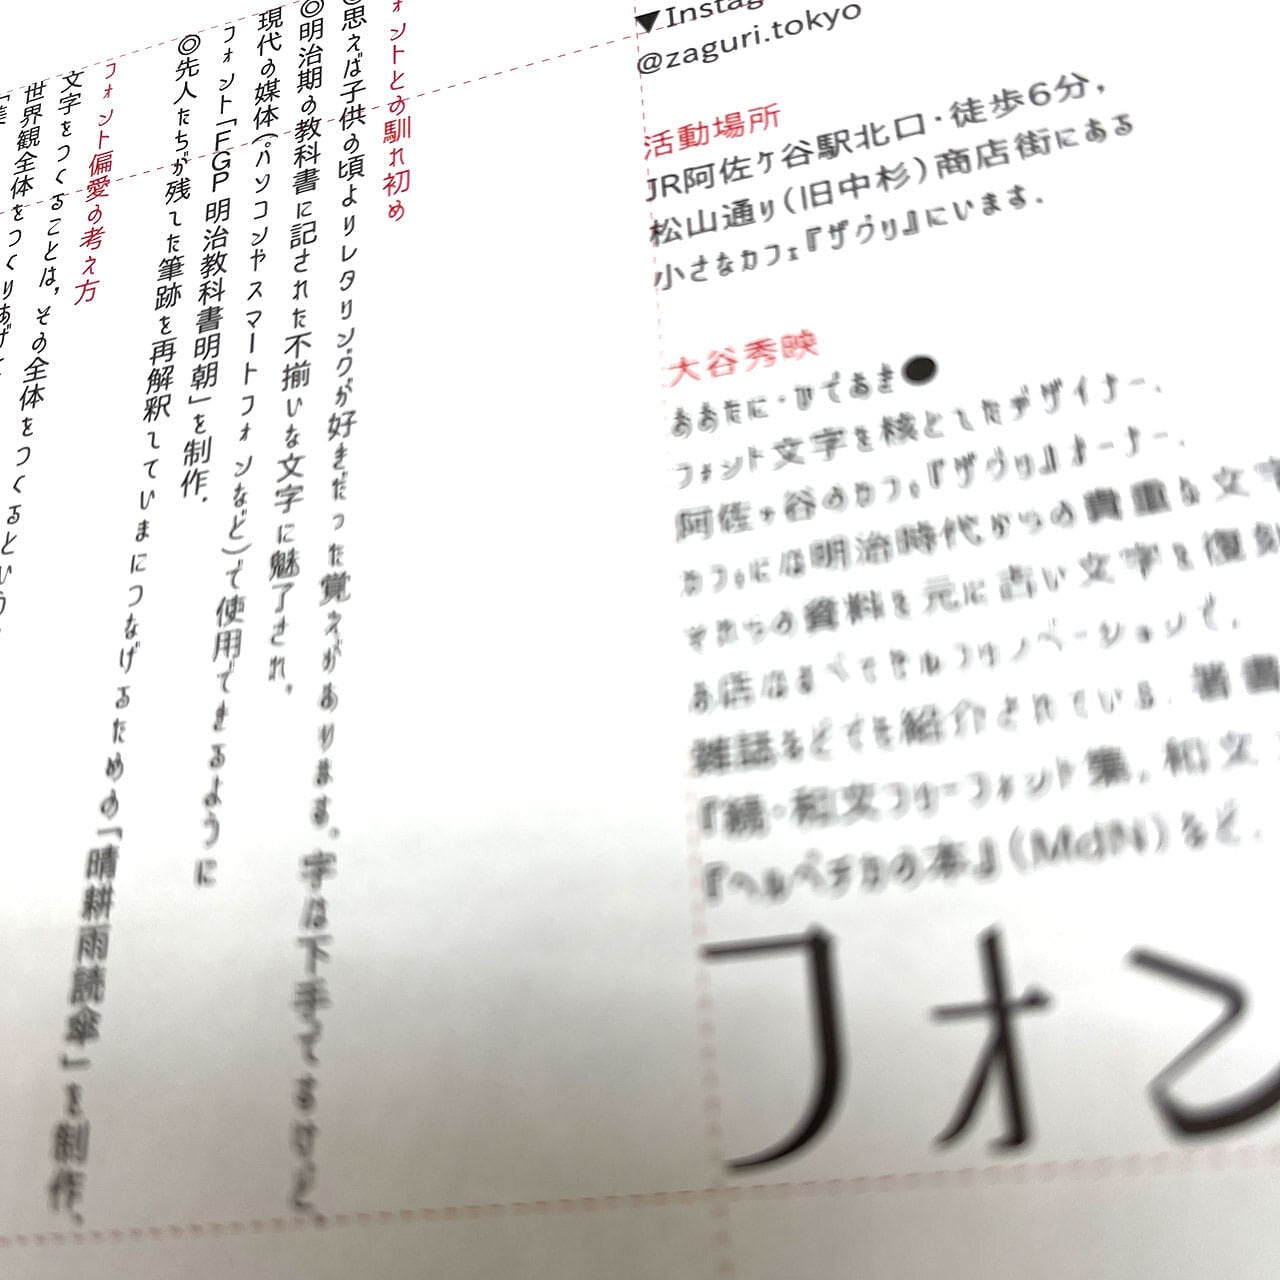 ▼Instag
@zaguri.tokyo
活動場所
JR阿佐ケ谷駅北口・徒歩6分，
松山通り（旧中杉）商店街にある
小さなカフェ『ザグリ』にいます．
大谷秀映
おおたに・ひであき●
フォント文字を核としたデザイナー．
阿佐ヶ谷のカフェ『ザグリ』オーナー．
カフェには明治時代からの貴重な文字
それらの資料を元に古い文字を復刻
お店はすべてセルフリノベーションで，
雑誌などでも紹介されている．著書
『続・和文フリーフォント集，和文
『ヘルベチカの本』（MdN）など．
フォン
ォントとの馴れ初め
◎思えば子供の頃よりレタリングが好きだった覚えがあります．字は下手ですけど．
◎明治期の教科書に記された不揃いな文字に魅了され，
現代の媒体（パソコンやスマートフォンなど）で使用できるように
フォント「FGP明治教科書明朝」を制作．
◎先人たちが残した筆跡を再解釈していまにつなげるための「晴耕雨読傘」を制作．
フォント偏愛の考え方
文字をつくることは，その全体をつくるという
世界観全体をつくりあげて